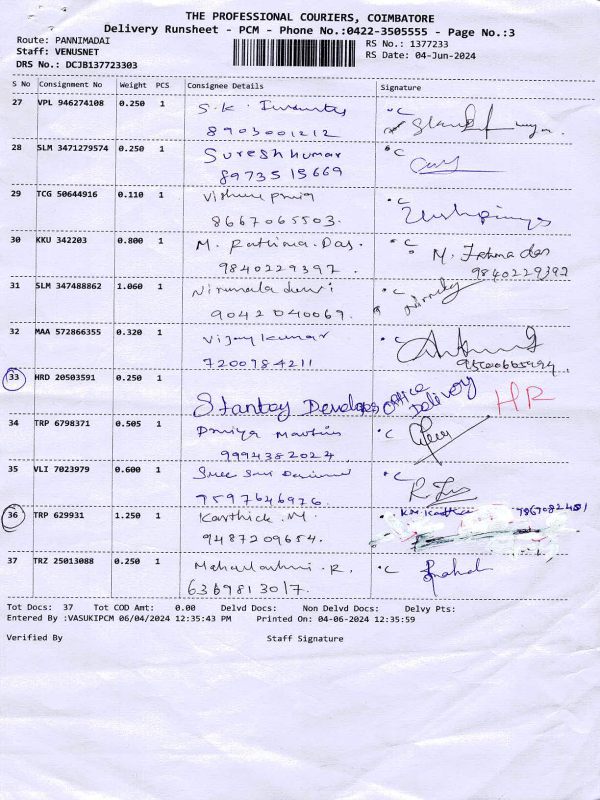 THE PROFESSIONAL COURIERS, COIMBATORE
Delivery Runsheet - PCM - Phone No.:0422-3505555 - Page No.:3
Route: PANNIMADAI
Staff: VENUSNET
DRS No.: DCJB137723303
RS No.: 1377233
RS Date: 04-Jun-2024
S No Consignment No Weight PCS Consignee Details Signature
27 VPL 946274108 0.250 1 S.K. °C
8903001212
28 SLM 3471279574 0.250 1 Suresh kumar °C
8973515669
29 TCG 50644916 0.110 1 Vishnu priya
8667065503.
30 KKU 342203 0.800 1 M. Fathima. Das. °C M. Fathima das
9840229397. 9840229397
31 SLM 347488862 1.060 1 Nirumala devi °C
9042040069.
32 MAA 572866355 0.320 1 Vijay kumar °C
7200784211
33 HRD 20503591 0.250 1 Office Delivery HR
34 TRP 6798371 0.505 1 Priya °C
9994382024.
35 VLI 7023979 0.600 1 Sree °C
9597646976.
36 TRP 629931 1.250 1 Karthick.M.
9487209654.
37 TRZ 25013088 0.250 1 Mahalakshmi.R. °C
6369813017.
Tot Docs: 37 Tot COD Amt: 0.00 Delvd Docs: Non Delvd Docs: Delvy Pts:
Entered By :VASUKIPCM 06/04/2024 12:35:43 PM Printed On: 04-06-2024 12:35:59
Verified By Staff Signature